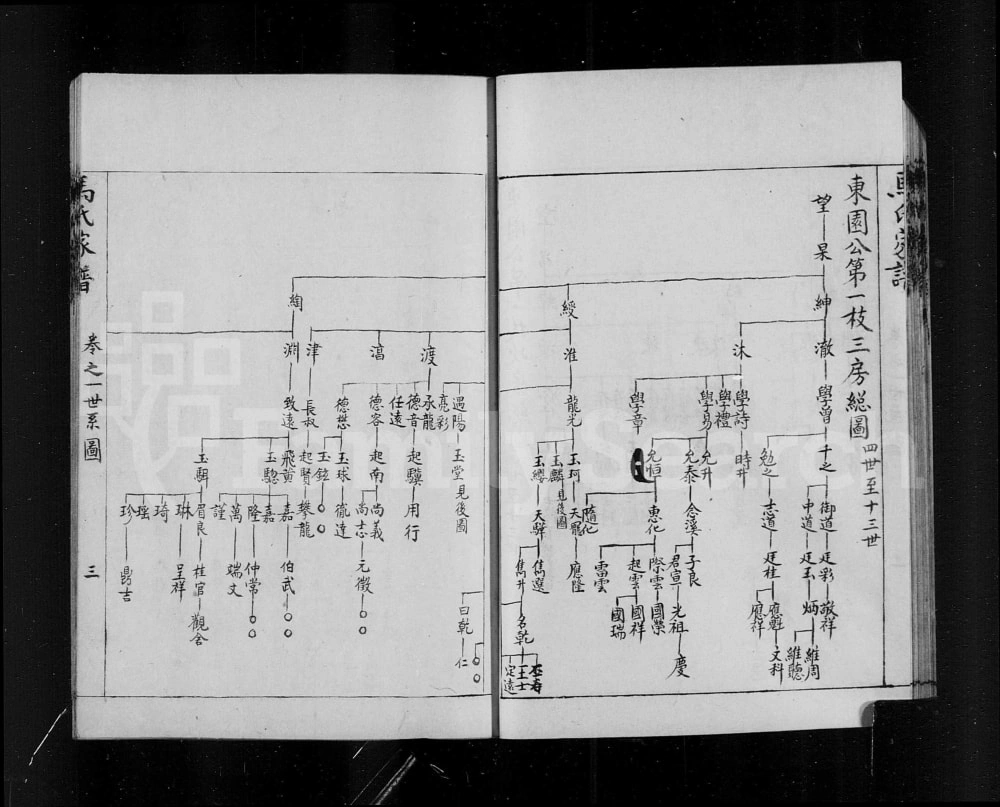 東園公第一枝三房總圖
四世至十三世
望
杲
紳
澈
學曾
千之
御道
廷彩
敬祥
中道
廷玉
炳
維周
維聽
勉之
志道
廷桂
應魁
文科
應祥
沐
學詩
時升
學禮
學易
允升
允泰
念溪
子良
君宣
光祖
慶
學章
允恒
惠化
際雲
國榮
起雲
國祥
國瑞
雷雲
隨化
綬
淮
龍光
玉珂
天寵
應隆
玉麟
見後圖
玉纓
天驛
雋選
雋升
名乾
丕寿
王士
定遠
曰乾
仁
渡
遇陽
玉堂
見後圖
亮彩
承龍
德音
起驥
用行
任遠
滈
德容
起南
尚義
尚志
元徵
德懋
玉球
徵達
玉鉉
津
長叔
起賢
攀龍
綯
淵
致遠
飛黄
嘉
伯武
嘉
隆
仲常
萬
端文
謹
玉驄
玉騆
眉良
桂官
觀舍
琳
呈祥
琦
瑶
珍
鼎吉
馬氏家譜
卷之一世系圖
三